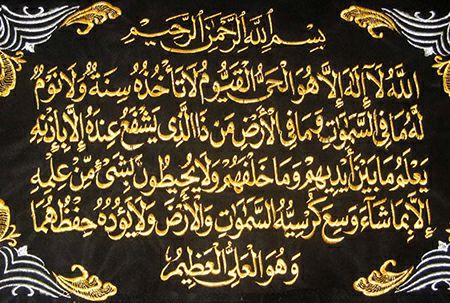 بِسْمِ اللهِ الرَّحْمٰنِ الرَّحِيمِ
اللهُ لَا إِلٰهَ إِلَّا هُوَ الْحَيُّ الْقَيُّومُ لَا تَأْخُذُهُ سِنَةٌ وَلَا نَوْمٌ
لَهُ مَا فِي السَّمٰوَاتِ وَمَا فِي الْأَرْضِ مَنْ ذَا الَّذِي يَشْفَعُ عِنْدَهُ إِلَّا بِإِذْنِهِ
يَعْلَمُ مَا بَيْنَ أَيْدِيهِمْ وَمَا خَلْفَهُمْ وَلَا يُحِيطُونَ بِشَيْءٍ مِنْ عِلْمِهِ
إِلَّا بِمَا شَاءَ وَسِعَ كُرْسِيُّهُ السَّمٰوَاتِ وَالْأَرْضَ وَلَا يَؤُدُهُ حِفْظُهُمَا
وَهُوَ الْعَلِيُّ الْعَظِيمُ